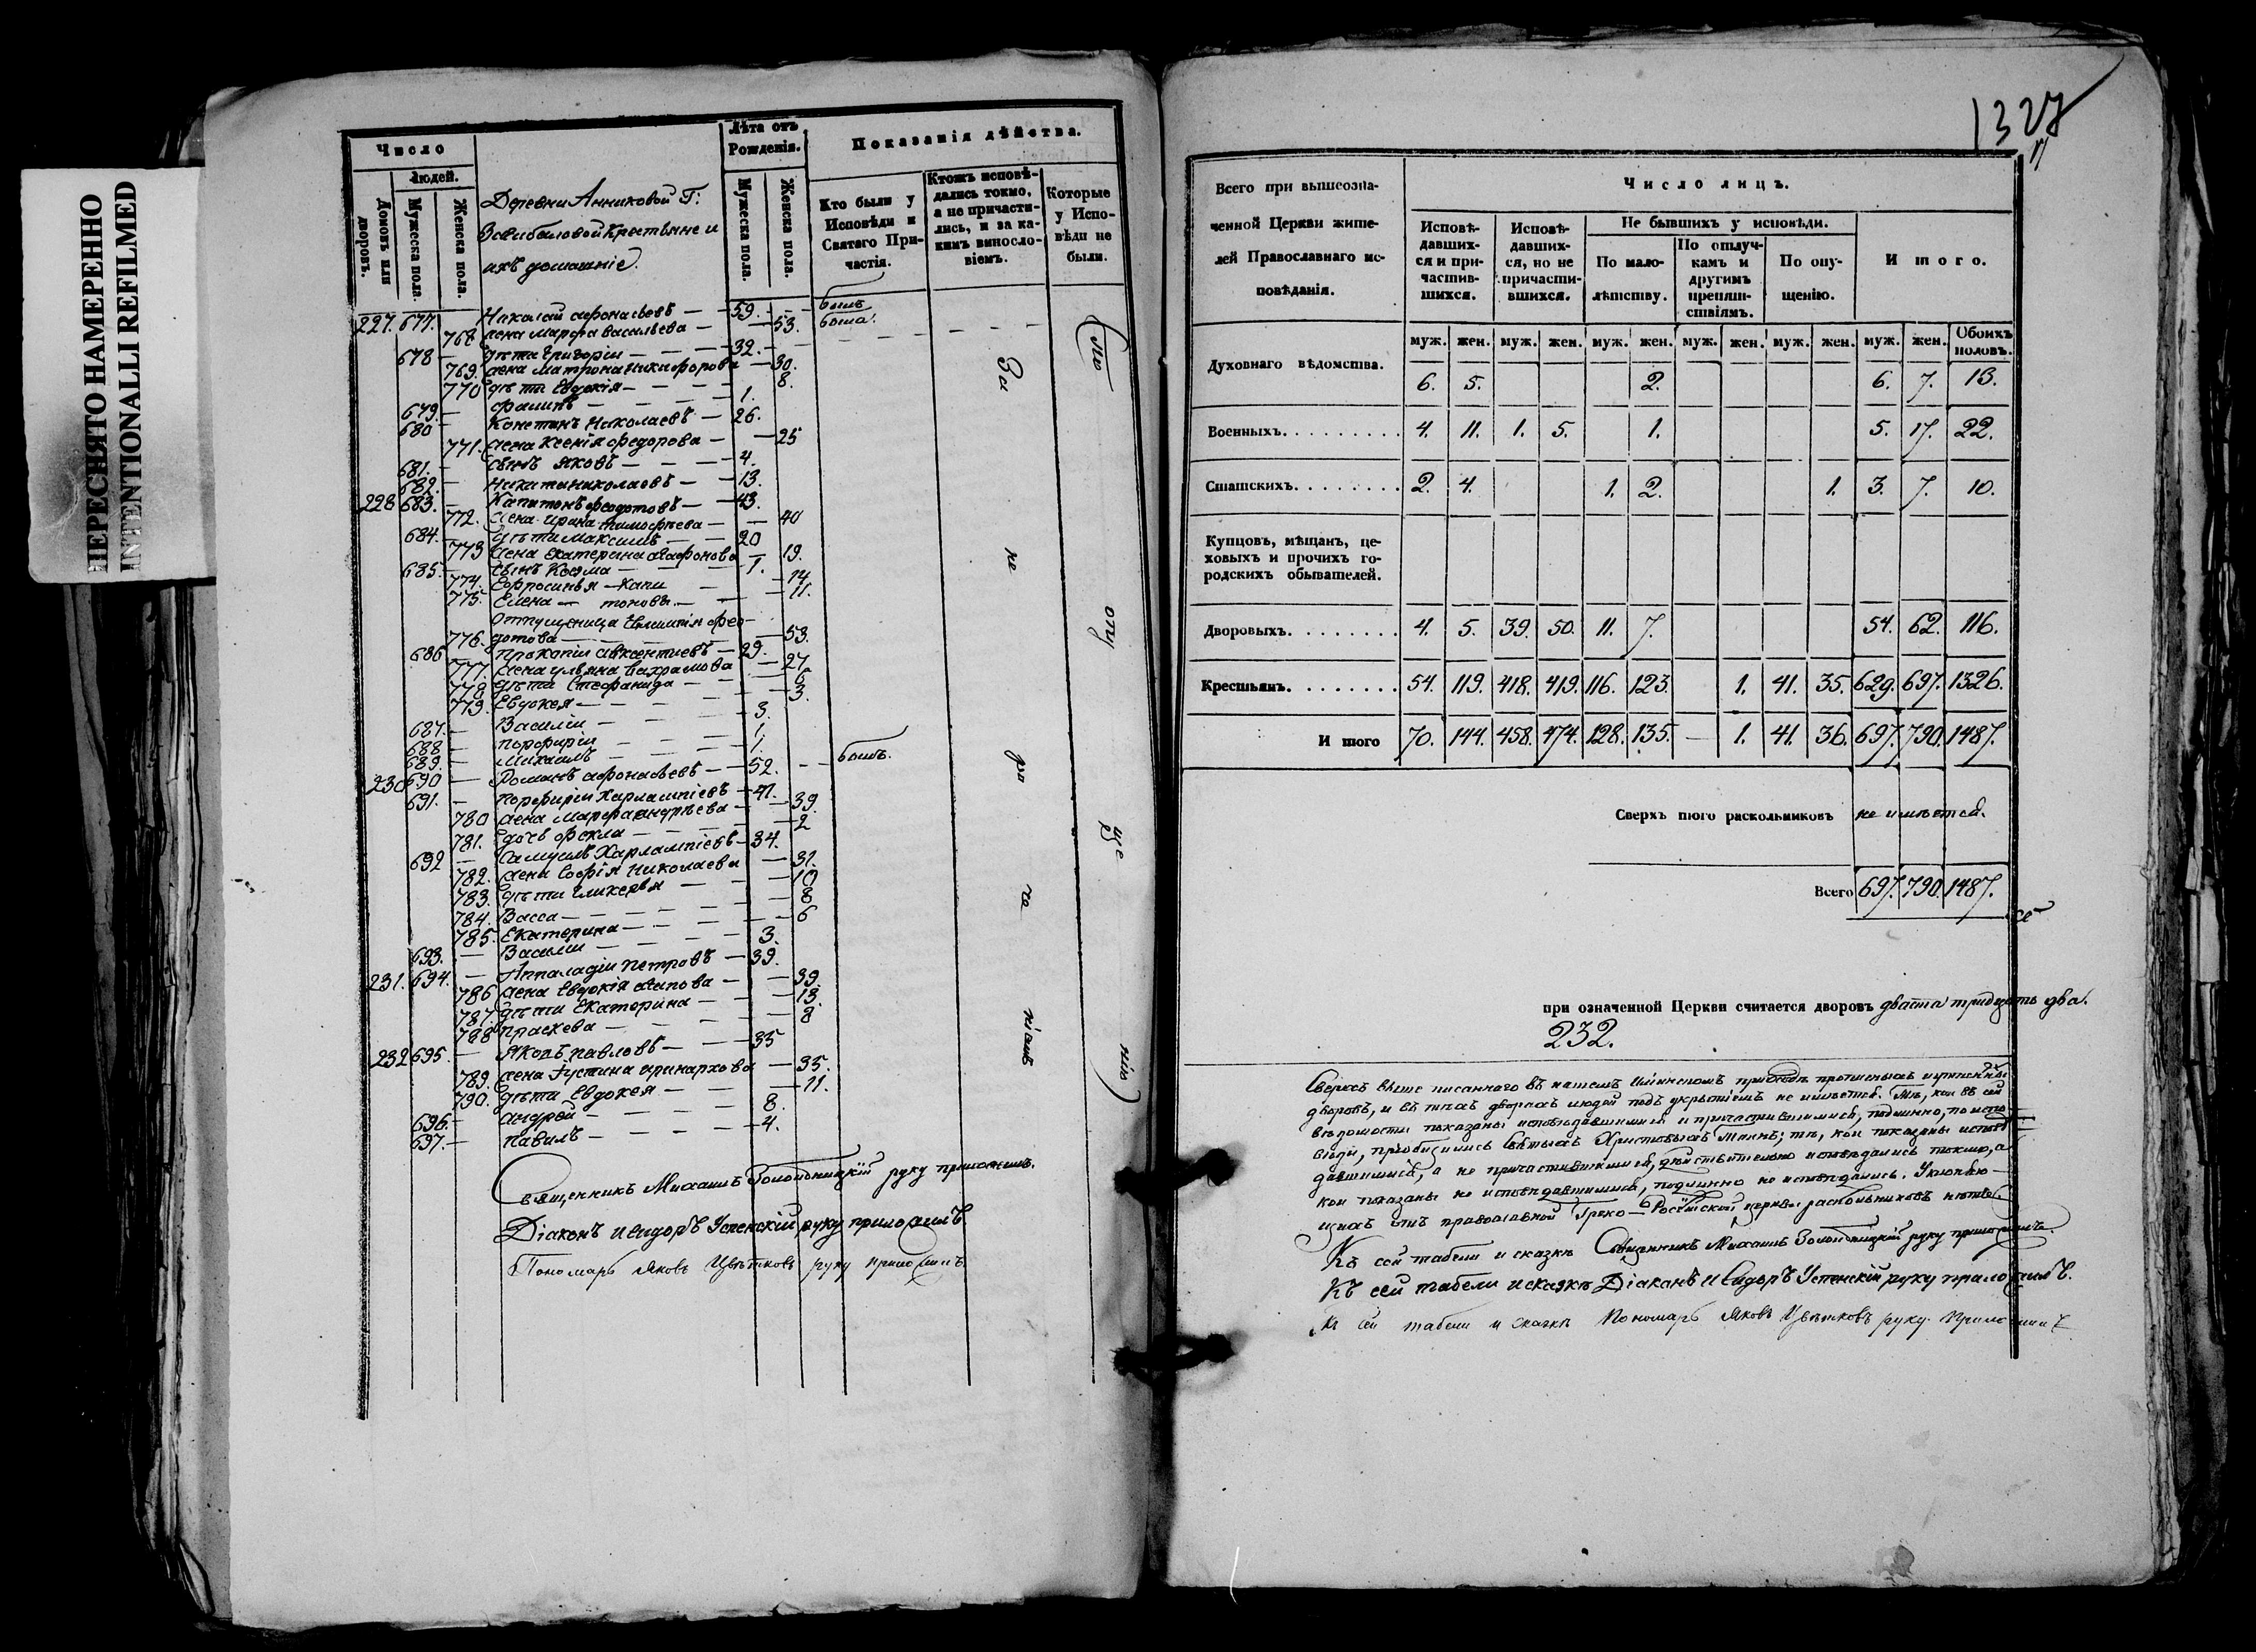 ПЕРЕСНЯТО НАМЕРЕННО
INTENTIONALLI REFILMED
Число
Людей.
Домовъ или дворовъ.
Мужеска пола.
Женска пола.
Деревни Анниковой Г.
Крестьяне и
ихъ домашніе.
Лѣта отъ Рожденія.
Мужеска пола.
Женска пола.
Показанія дѣйства.
Кто были у Исповѣди и Святаго Причастія.
Ктожъ исповѣдались токмо, а не причастились, и за какимъ винословіемъ.
Которые у Исповѣди не были.
227. 677. — Николай Афонасьевъ — 59. — былъ
768 жена Марфа Васильева — 53. была.
678 — дѣти Григорій — 32.
769. жена Матрона Никифорова — 30.
770 дѣти Евдокія — 8.
679. — Филипъ — 1.
680 — Констинъ Николаевъ — 26.
771. жена Ксенія Федорова — 25
681. — сынъ Яковъ — 4.
682. — Никита Николаевъ — 13.
228 683. — Капитонъ Феодотовъ — 43.
772. жена Ирина Тимофѣева — 40
684. — дѣти Максимъ — 20
773 жена Екатерина Агафонова — 19.
685. — сынъ Козма — 1.
774. Ефросинья — Капи — 14.
775. Елена — тонова. — 11.
Отпущеница Фео-
776. дотова — 53.
686 Прокопій Авксентіевъ — 29.
777. жена Ульяна Вахрамова — 27
778 дѣти Стефанида — 6
779. Евдокея — 3.
687. — Василій — 3.
688 — Порфирій — 1.
689. — Михаилъ — 1.
230 690 — Романъ Афонасьевъ — 52. — былъ.
691. — Порфирій Харлампіевъ — 41.
780 жена Марфа Андрѣева — 39.
781. дочь Фекла — 2
692 — Самуилъ Харлампіевъ — 34.
782. жена Софія Николаева — 31.
783. дѣти Гликерія — 10
784. Васса — 8
785. Екатерина — 6
693. — Василій — 3.
231. 694. — Аппаладій Петровъ — 39.
786 жена Евдокія Осипова — 39.
787. дѣти Екатерина — 13.
788 Праскева — 8
232 695 — Яковъ Павловъ — 35
789. жена Іустина Иринархова — 35.
790. дѣти Евдокея — 11.
696. — Андрей — 8.
697. — Павилъ — 4.
За не ра че ніемъ
(По опу ще нію)
Священникъ Михаилъ Золотницкій руку приложилъ.
Діаконъ Исидоръ Успенскій руку приложилъ.
Пономарь Яковъ Цвѣтковъ руку приложилъ
1327
Всего при вышеозначенной Церкви жителей Православнаго исповѣданія.
Число лицъ.
Исповѣдавшихся и причастившихся.
Исповѣдавшихся, но не причастившихся.
Не бывшихъ у исповѣди.
По малолѣтству.
По отлучкамъ и другимъ препятствіямъ.
По опущенію.
Итого.
муж. жен. муж. жен. муж. жен. муж. жен. муж. жен. муж. жен. Обоихъ половъ.
Духовнаго вѣдомства. 6. 5. 2. 6. 7. 13.
Военныхъ. 4. 11. 1. 5. 1. 5. 17. 22.
Статскихъ. 2. 4. 1. 2. 1. 3. 7. 10.
Купцовъ, мѣщанъ, цеховыхъ и прочихъ городскихъ обывателей.
Дворовыхъ. 4. 5. 39. 50. 11. 7. 54. 62. 116.
Крестьянъ. 54. 119. 418. 419. 116. 123. 1. 41. 35. 629. 697. 1326.
Итого 70. 144. 458. 474. 128. 135. — 1. 41. 36. 697. 790. 1487.
Сверхъ того раскольниковъ не имѣется.
Всего 697. 790. 1487.
при означенной Церкви считается дворовъ двѣста тридцать два.
232.
Сверхъ выше писаннаго въ нашемъ приходѣ
дворовъ, и въ тѣхъ дворахъ людей подъ укрытіемъ не имѣется. Тѣ, кои въ сей
вѣдомости показаны исповѣдавшимися и причастившимися, подлинно, по испо-
вѣди, пріобщились Святыхъ Христовыхъ Таинъ; тѣ, кои показаны исповѣ-
давшимися, а не причастившимися, дѣйствительно исповѣдались токмо, а
кои показаны не исповѣдавшимися, подлинно не исповѣдались. Уклоняю-
щихся отъ православной Греко-Россійской церкви раскольниковъ нѣтъ.
Къ сей табели и сказкѣ Священникъ Михаилъ Золотницкій руку приложилъ.
Къ сей табели и сказкѣ Діаконъ Исидоръ Успенскій руку приложилъ.
Къ сей табели и сказкѣ Пономарь Яковъ Цвѣтковъ руку приложилъ